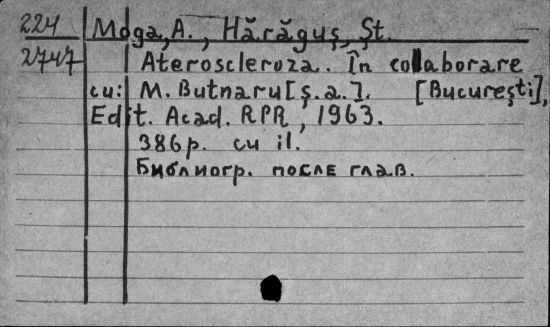 224 Moga, A., Hărăguș, Șt.
2747 Ateroscleroza. În colaborare
cu: M. Butnaru [ș.a.]. [București],
Edit. Acad. RPR, 1963.
386 p. cu il.
Библиогр. после глав.